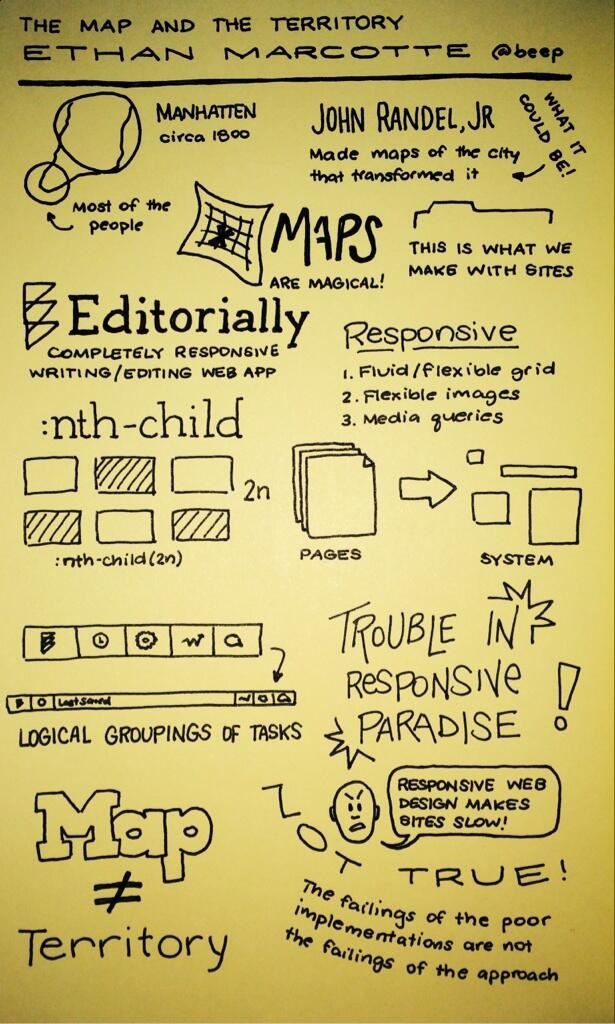 THE MAP AND THE TERRITORY
ETHAN MARCOTTE @beep
MANHATTEN
circa 1800
MOST OF THE
PEOPLE
JOHN RANDEL, JR
Made maps of the city
that transformed it
WHAT IT
COULD BE!
MAPS
ARE MAGICAL!
THIS IS WHAT WE
MAKE WITH SITES
Editorially
COMPLETELY RESPONSIVE
WRITING/EDITING WEB APP
Responsive
1. Fluid/flexible grid
2. Flexible images
3. Media queries
:nth-child
2n
:nth-child(2n)
PAGES
SYSTEM
Last saved
LOGICAL GROUPINGS OF TASKS
TROUBLE IN
RESPONSIVE
PARADISE!
Map
≠
Territory
RESPONSIVE WEB
DESIGN MAKES
SITES SLOW!
NOT TRUE!
The failings of the poor
implementations are not
the failings of the approach